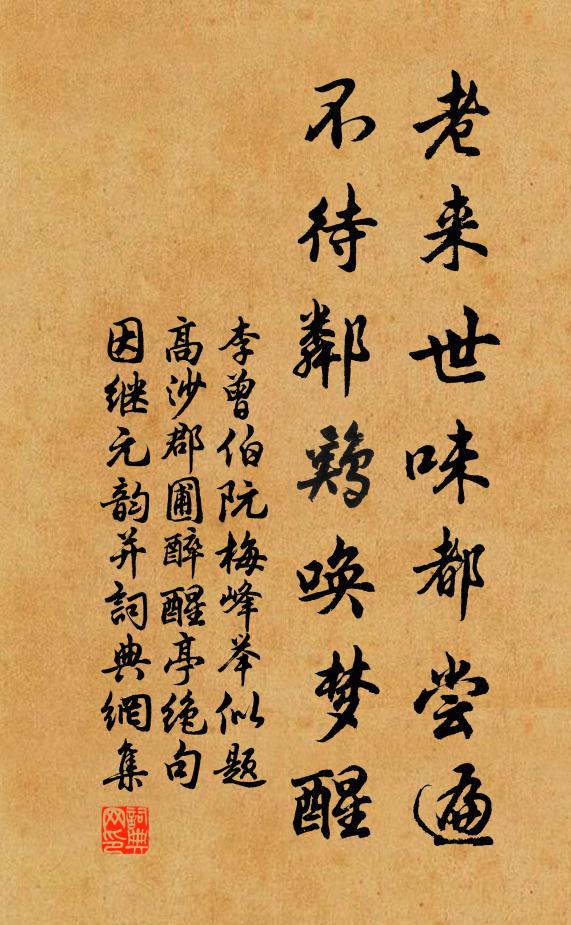 老来世味都尝遍
不待鄰鷄唤梦醒
李曾伯阮梅峰举似题
高沙郡圃醉醒亭绝句
因继元韵并詞典網集
詞典网印